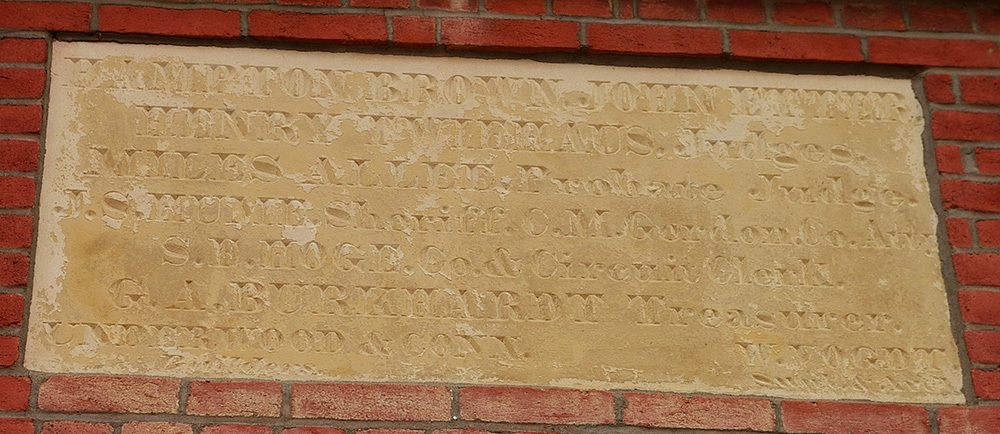 HAMPTON BROWN. JOHN
HENRY TWIEHAUS. Judges.
MILES ALLEE, Probate Judge.
J.S. HUME. Sheriff. C.M. Gordon, Co. Att.
S.E. HOGE. Co. & Circuit Clerk.
G.A. BURKHARDT Treasurer.
UNDERWOOD & CONN.
Builders